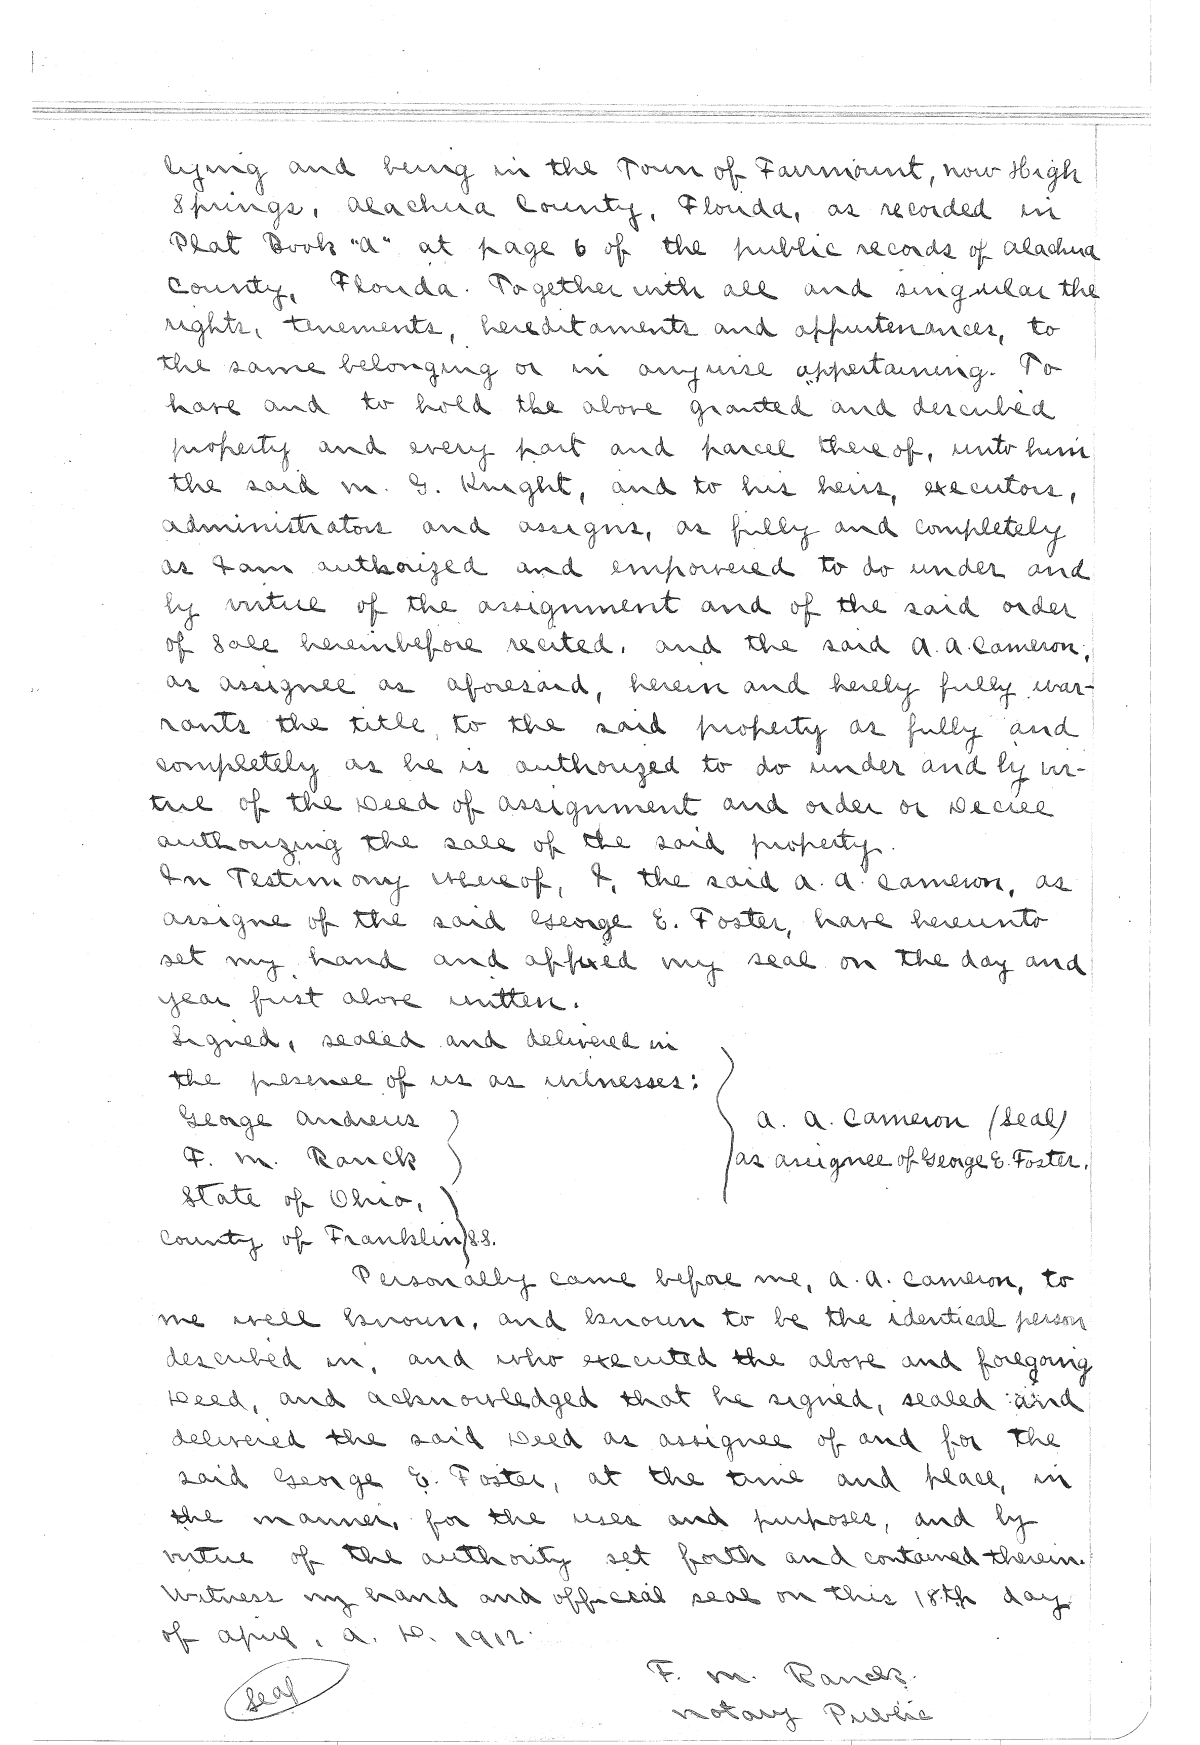 lying and being in the Town of Fairmount, now High
Springs, Alachua County, Florida, as recorded in
Plat Book "A" at page 6 of the public records of Alachua
County, Florida. Together with all and singular the
rights, tenements, hereditaments and appurtenances, to
the same belonging or in anywise appertaining. To
have and to hold the above granted and described
property and every part and parcel thereof, unto him
the said M. G. Knight, and to his heirs, executors,
administrators and assigns, as fully and completely
as I am authorized and empowered to do under and
by virtue of the assignment and of the said order
of Sale hereinbefore recited. and the said A. A. Cameron,
as assignee as aforesaid, herein and hereby fully war-
rants the title, to the said property as fully and
completely as he is authorized to do under and by vir-
tue of the Deed of assignment and order or Decree
authorizing the sale of the said property.
In Testimony whereof, I, the said A. A. Cameron, as
assigne of the said George E. Foster, have hereunto
set my hand and affixed my seal on the day and
year first above written.
Signed, sealed and delivered in
the presence of us as witnesses:
George Andrews
A. A. Cameron (Seal)
F. M. Ranck
as assignee of George E. Foster.
State of Ohio,
County of Franklin S.S.
Personally came before me, A. A. Cameron, to
me well known, and known to be the identical person
described in, and who executed the above and foregoing
Deed, and acknowledged that he signed, sealed and
delivered the said Deed as assignee of and for the
said George E. Foster, at the time and place, in
the manner, for the uses and purposes, and by
virtue of the authority set forth and contained therein.
Witness my hand and official seal on this 18th day
of April, A. D. 1912.
F. M. Ranck.
Seal
Notary Public